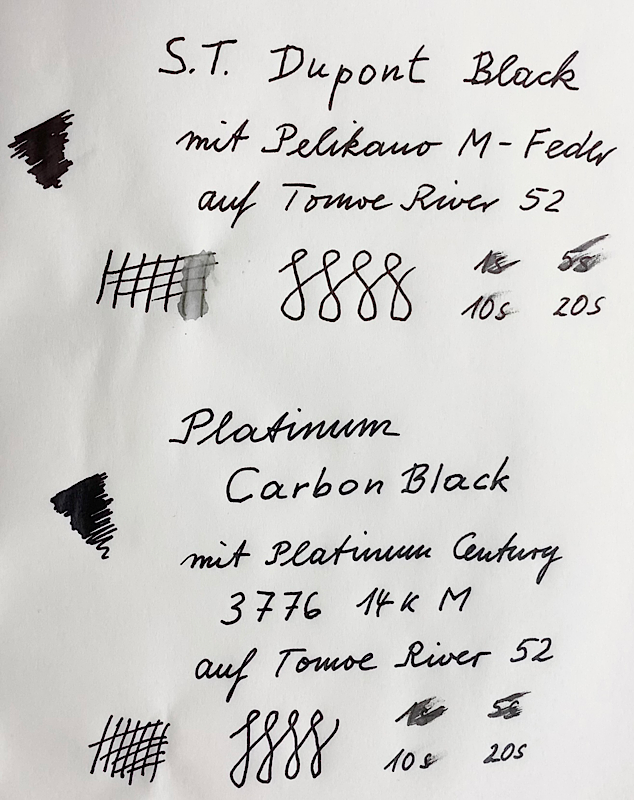 S.T. Dupont Black
mit Pelikano M-Feder
auf Tomoe River 52
1s 5s
10s 20s
Platinum
Carbon Black
mit Platinum Century
3776 14K M
auf Tomoe River 52
1s 5s
10s 20s